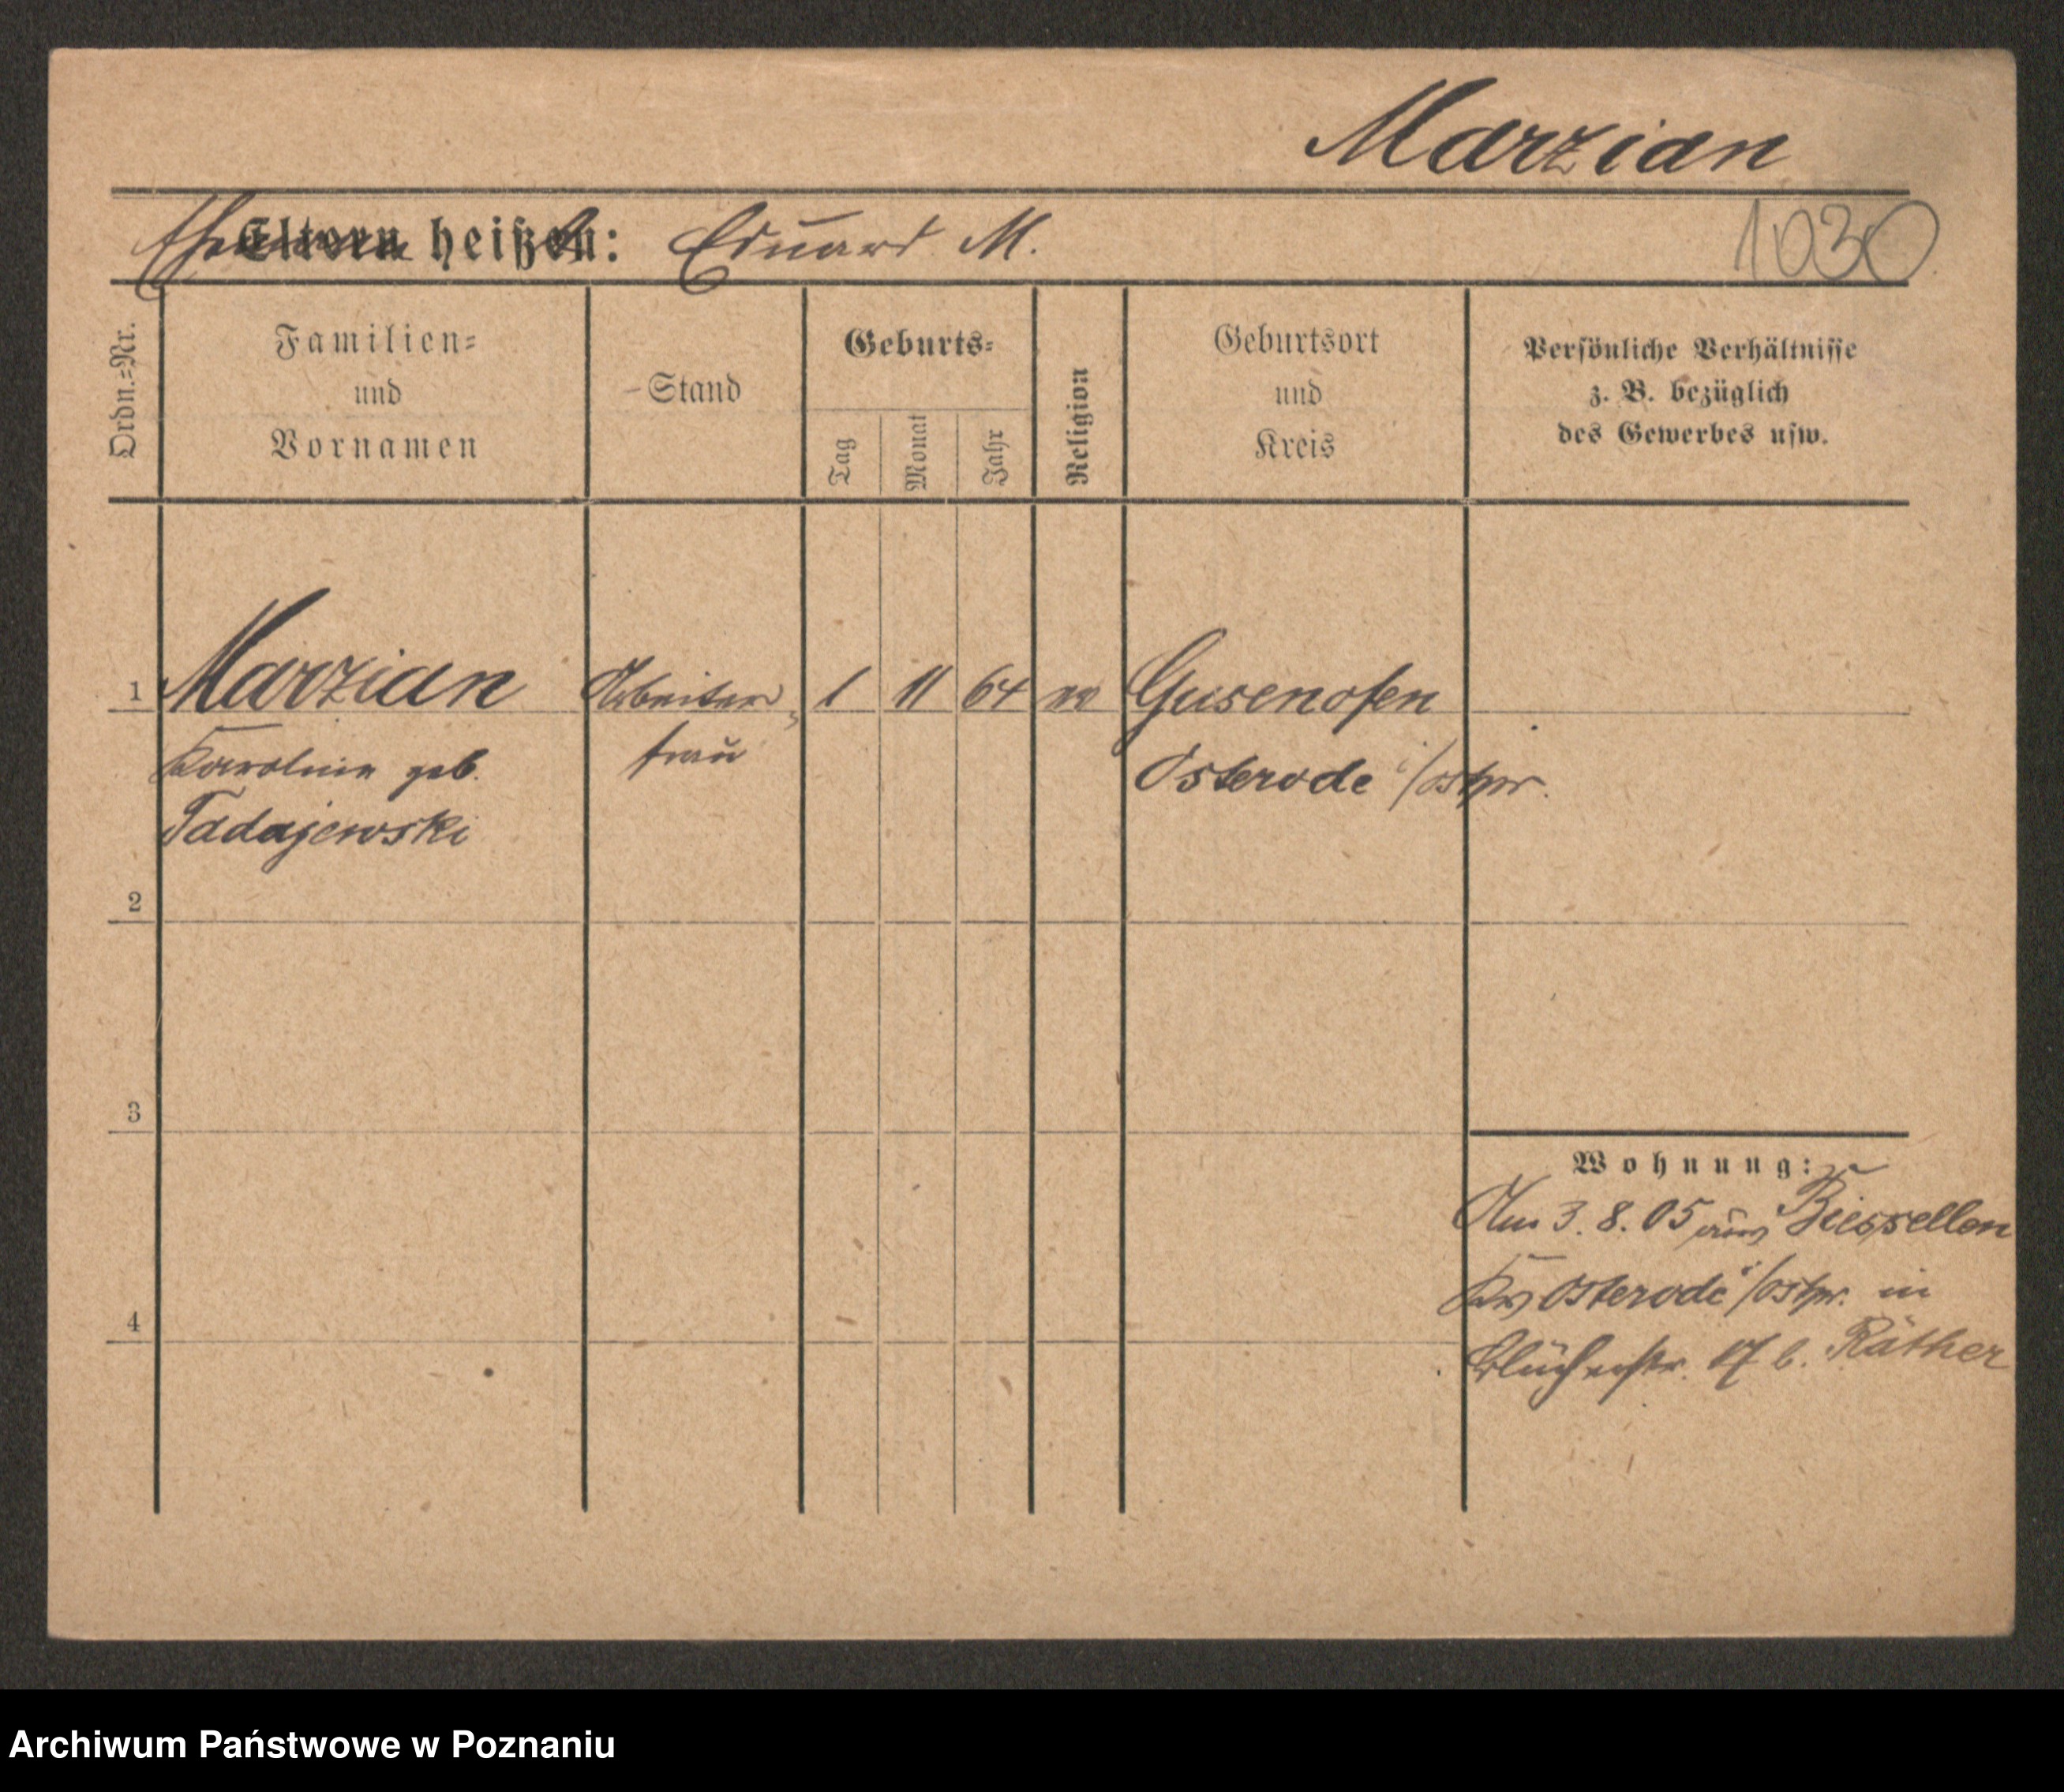 Marzian
Ehemann
Eltern heißen: Eduard M.
1030
Ordn.=Nr.
Familien=
und
Vornamen
Stand
Geburts=
Tag
Monat
Jahr
Religion
Geburtsort
und
Kreis
Persönliche Verhältnisse
z. B. bezüglich
des Gewerbes usw.
1 Marzian Arbeiter, 1 11 64 Gusenofen
Karoline geb. frau Osterode i/Ostpr.
Tadajewski
2
3
4
Wohnung:
Am 3. 8. 05 aus Biessellen
Krs Osterode i/Ostpr. in
Blücherstr. 17 b. Räther
Archiwum Państwowe w Poznaniu